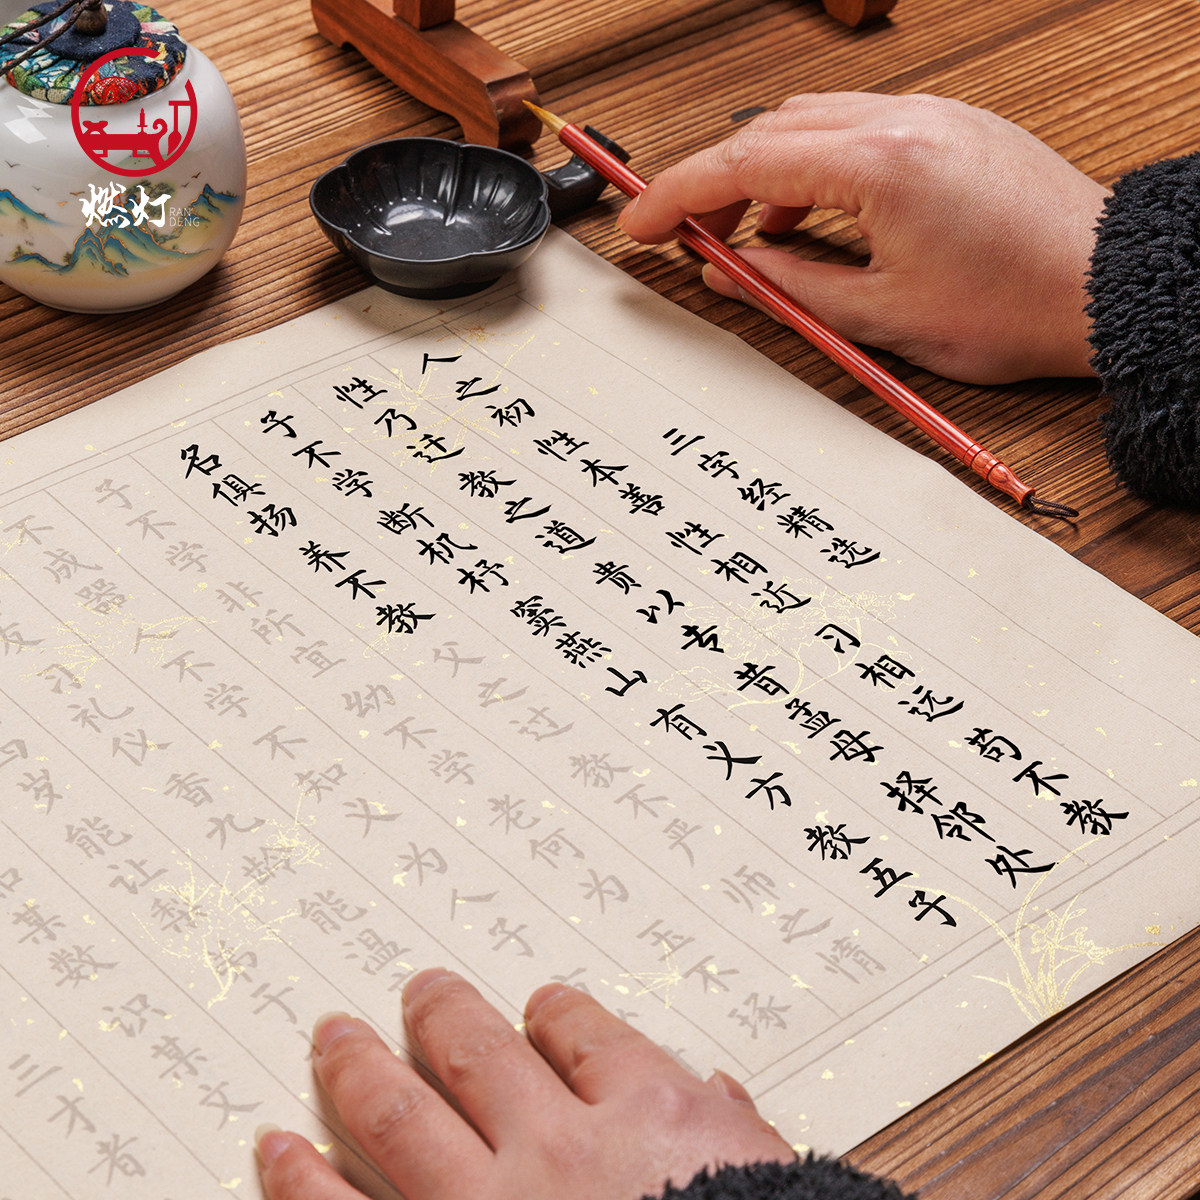 燃灯
RAN
DENG
三字经精选
人之初 性本善 性相近 习相远 苟不教
性乃迁 教之道 贵以专 昔孟母 择邻处
子不学 断机杼 窦燕山 有义方 教五子
名俱扬 养不教 父之过 教不严 师之惰
子不学 非所宜 幼不学 老何为 玉不琢
不成器 人不学 不知义 为人子
友 习礼仪 香九龄 能温
岁 能让梨 弟于
某数 识某文
三才者